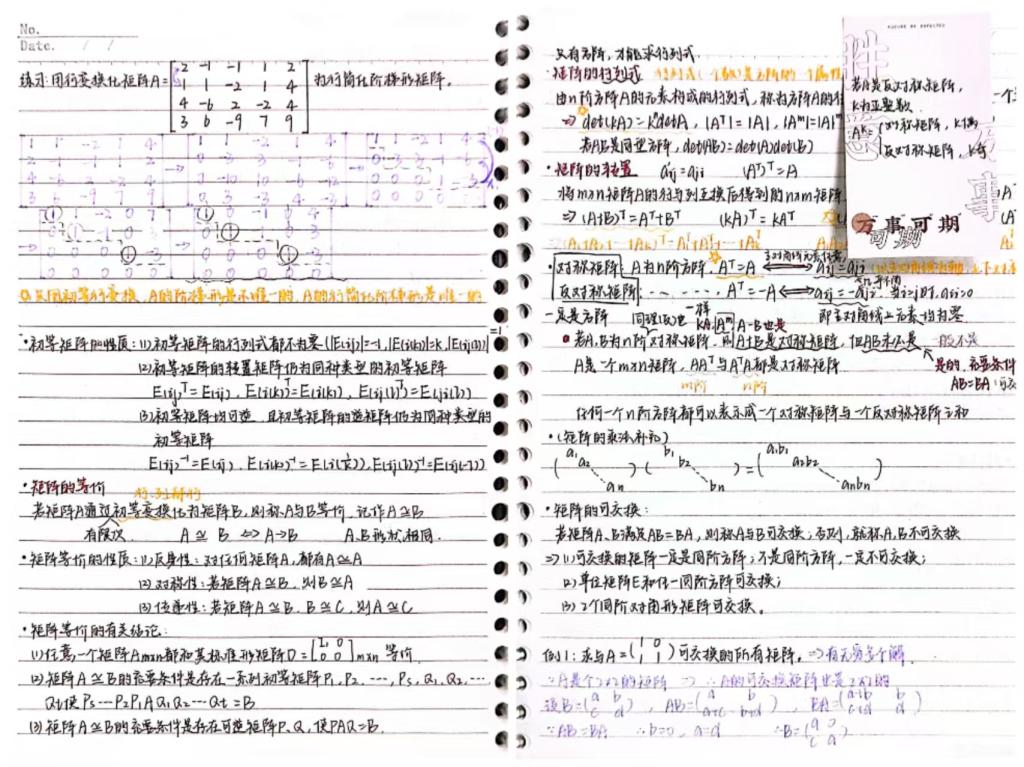 No.
Date. / /
练习:用行变换化矩阵A= [2 -1 -1 1 2
1 1 -2 1 4
4 -6 2 -2 4
3 6 -9 7 9] 为行简化阶梯形矩阵.
只用初等行变换, A的阶梯形是不唯一的, A的行简化阶梯形是唯一的
·初等矩阵的性质:(1)初等矩阵的行列式都不为零(|E(ij)|=-1,|E(i(k))|=k,|E(ij(k))|=1)
(2)初等矩阵的转置矩阵仍为同种类型的初等矩阵
(3)初等矩阵均可逆,且初等矩阵的逆矩阵仍为同种类型的
初等矩阵
·矩阵的等价
行、列都行
若矩阵A通过初等变换化为矩阵B,则称A与B等价 记作A≅B
有限次 A≅B ⇔ A→B A.B形状相同.
·矩阵等价的性质:(1)反身性:对任何矩阵A,都有A≅A
(2)对称性:若矩阵A≅B,则B≅A
(3)传递性:若矩阵A≅B,B≅C,则A≅C
·矩阵等价的有关结论:
(1)任意一个矩阵Am×n都和其标准形矩阵D=[Ir 0
0 0]m×n 等价
(2)矩阵A≅B的充要条件是存在一系列初等矩阵P1,P2,…,Ps,Q1,Q2,…
Qt使Ps…P2P1AQ1Q2…Qt=B
(3)矩阵A≅B的充要条件是存在可逆矩阵P、Q,使PAQ=B.
只有方阵,才能求行列式
·矩阵的行列式 行列式(一个数)是方阵的一个属性
由n阶方阵A的元素构成的行列式,称为方阵A的行
⇒ det(kA)=kⁿdetA, |Aᵀ|=|A|, |Aᵐ|=|A|ᵐ
若A,B是同型方阵,det(AB)=det(A)det(B)
·矩阵的转置 aij=aji (Aᵀ)ᵀ=A
将m×n矩阵A的行与列互换后得到的n×m矩阵
⇒ (A±B)ᵀ=Aᵀ±Bᵀ (kA)ᵀ=kAᵀ
若A是反对称矩阵,
K为正整数
Aᴷ= {对称矩阵, K偶
反对称矩阵, K奇
万事可期
可期
·对称矩阵:A为n阶方阵, Aᵀ=A ⇔ aij=aji
反对称矩阵: … … , Aᵀ=-A ⇔ aij=-aji, 当i=j时,aij=0
一定是方阵 即主对角线上元素均为零
若A,B为n阶对称矩阵,则A+B是对称矩阵,但AB未必是 一般不是
是的,充要条件
AB=BA(可交
A是一个m×n矩阵,AAᵀ与AᵀA都是对称矩阵
m阶 n阶
任何一个n阶方阵都可以表示成一个对称矩阵与一个反对称矩阵之和
·(矩阵的乘法补充)
(a1 a2 ⋱ an)(b1 b2 ⋱ bn)=(a1b1 a2b2 ⋱ anbn)
·矩阵的可交换:
若矩阵A、B满足AB=BA,则称A与B可交换;否则,就称A,B不可交换
⇒(1)可交换的矩阵一定是同阶方阵;不是同阶方阵,一定不可交换;
(2)单位矩阵E和任一同阶方阵可交换;
(3)2个同阶对角形矩阵可交换。
例1:求与A=(1 0
1 1)可交换的所有矩阵. ⇒有无穷多个解
∵A是个2×2的矩阵 ⇒ ∴A的可交换矩阵也是2×2的
设B=(a b
c d), AB=(a b
a+c b+d), BA=(a+b b
c+d d)
∵AB=BA ∴b=0, a=d ∴B=(a 0
c a)